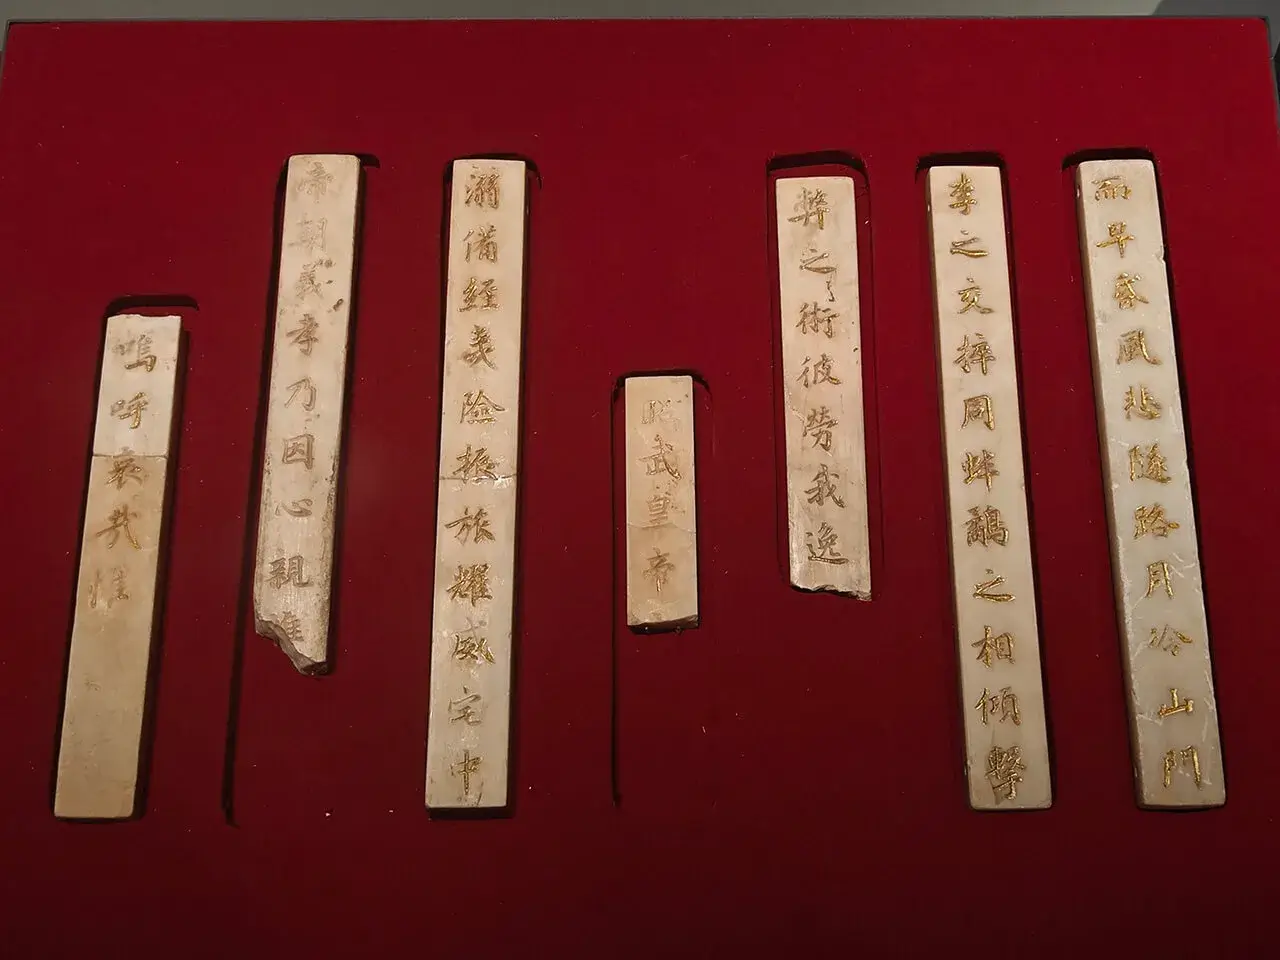 而早風悲隧路月冷山門
李之交捽同蚌鷸之相傾擊
弊之術彼勞我逸
昭武皇帝
備經險振旅耀威宅中
帝朝義孝乃因心親
嗚呼哀哉惟